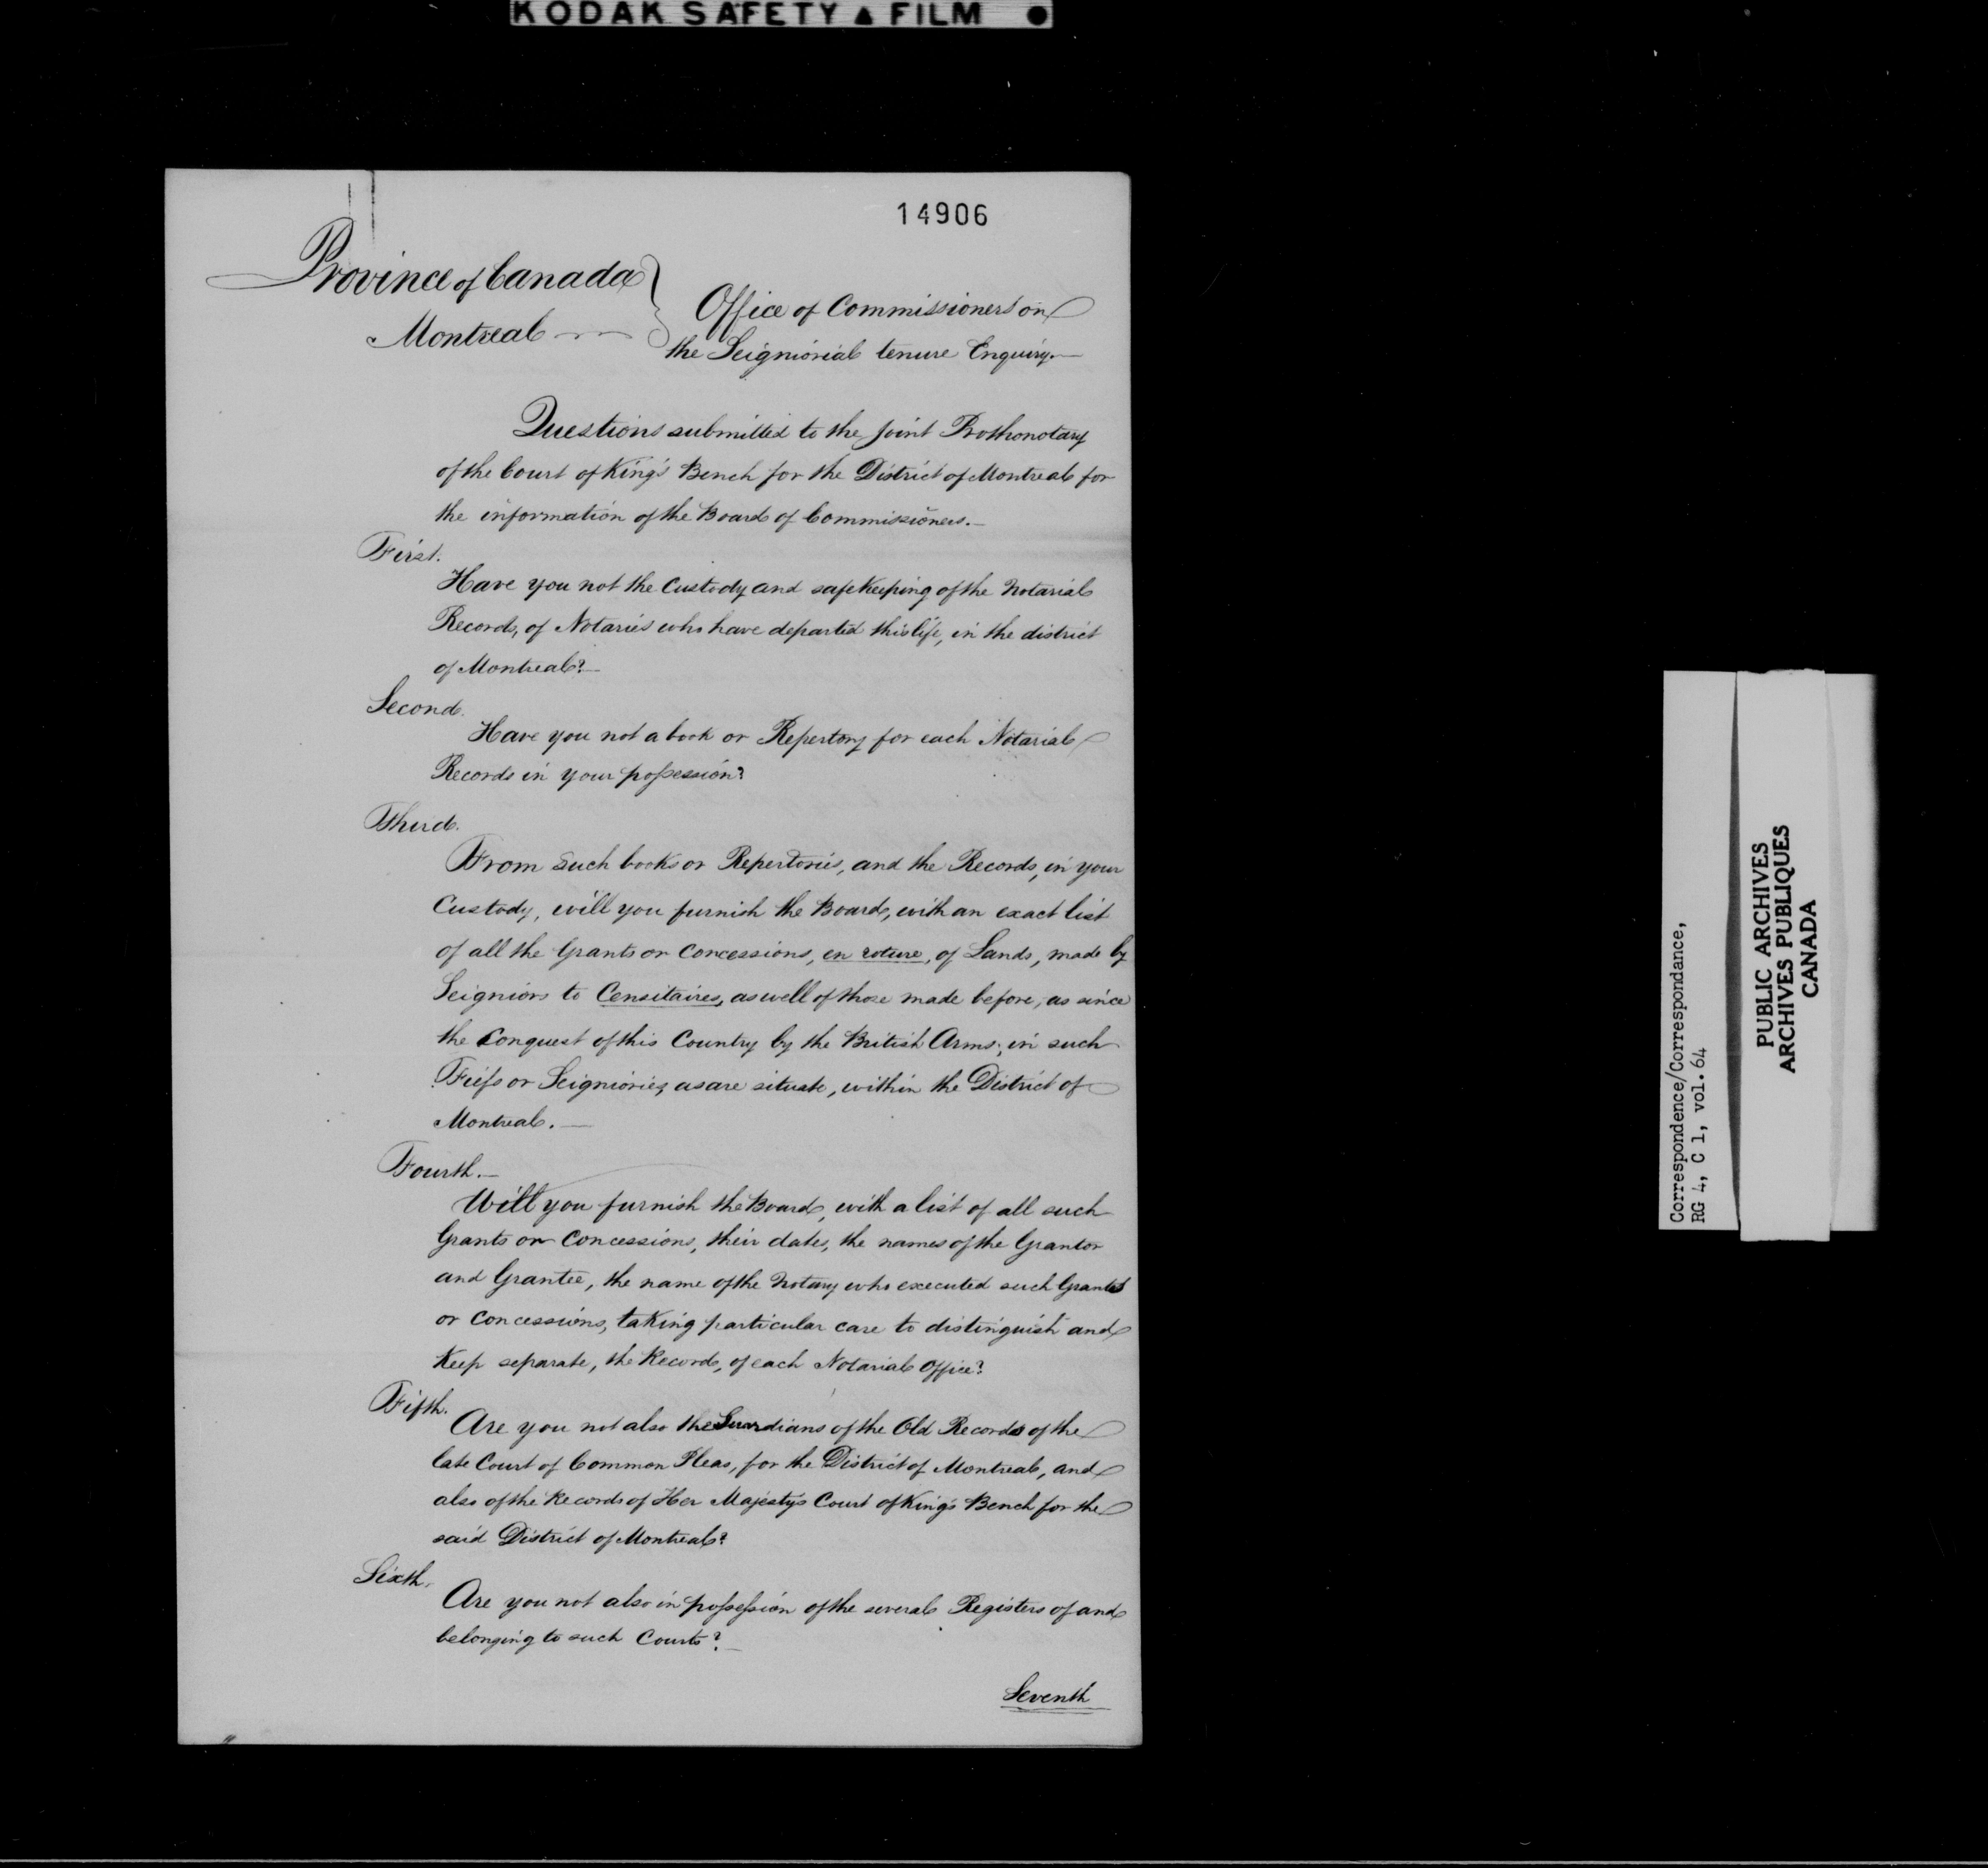 KODAK SAFETY ▲ FILM ●
14906
Province of Canada
Montreal
Office of Commissioners on
the Seigniorial tenure Enquiry.—
Questions submitted to the Joint Prothonotary
of the Court of King's Bench for the District of Montreal for
the information of the Board of Commissioners.—
First.
Have you not the Custody and safe Keeping of the Notarial
Records, of Notaries who have departed this life, in the district
of Montreal?—
Second.
Have you not a book or Repertory for each Notarial
Records in your possession?
Third.
From such books or Repertories, and the Records, in your
Custody, will you furnish the Board, with an exact list
of all the Grants or Concessions, en roture, of Lands, made by
Seigniors to Censitaires, as well of those made before, as since
the Conquest of this Country by the British Arms; in such
Fiefs or Seigniories, as are situate, within the District of
Montreal.—
Fourth.—
Will you furnish the Board, with a list of all such
Grants or Concessions, their dates, the names of the Grantor
and Grantee, the name of the Notary who executed such Grants
or Concessions, taking particular care to distinguish and
Keep separate, the Records, of each Notarial Office?
Fifth.
Are you not also the Guardians of the Old Records of the
late Court of Common Pleas, for the District of Montreal, and
also of the Records of Her Majestys Court of King's Bench for the
said District of Montreal?
Sixth.
Are you not also in possession of the several Registers of and
belonging to such Courts?—
Seventh
Correspondence/Correspondance,
RG 4, C 1, vol. 64
PUBLIC ARCHIVES
ARCHIVES PUBLIQUES
CANADA